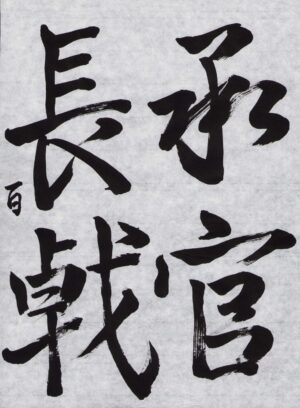 承官
長戟
百